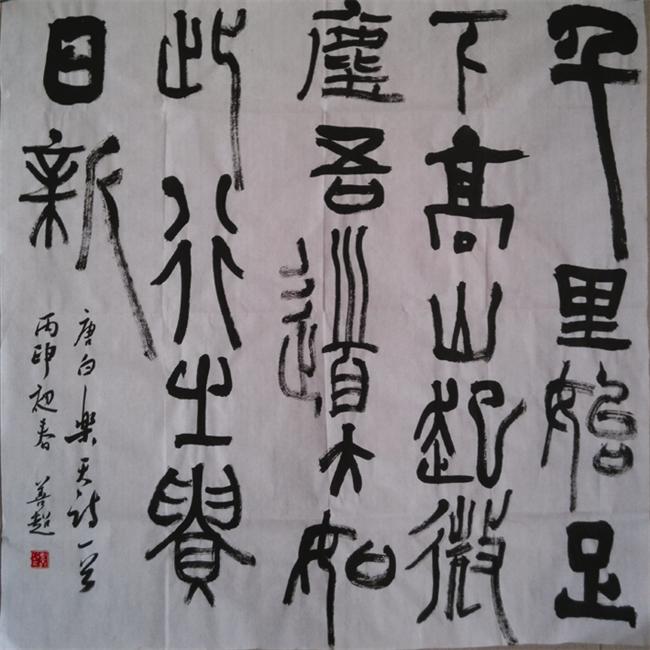 千里始足
下高山起微
塵吾道亦如
此行之貴
日新
唐白樂天詩一首
丙申初春 善超